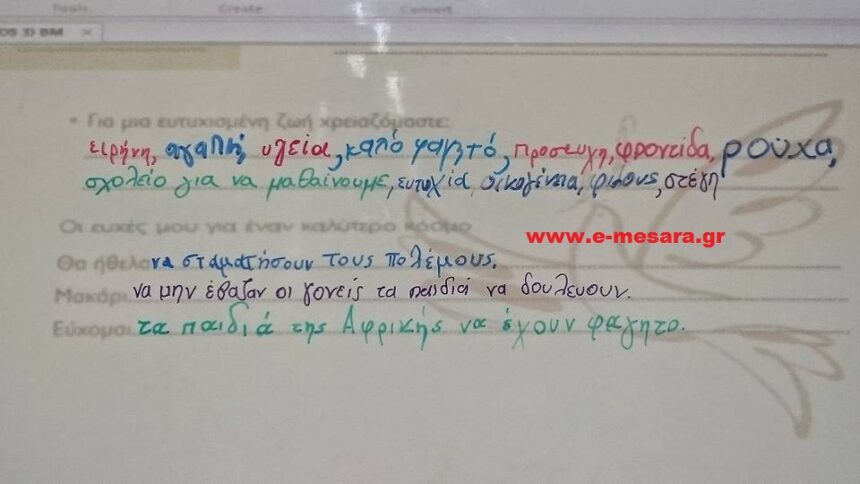 Tools Create Convert
3) BM ×
• Για μια ευτυχισμένη ζωή χρειαζόμαστε:
ειρήνη, αγαπη, υγεία, καλό φαγητό, προσευχη, φροντίδα, ρούχα,
σχολείο για να μαθαίνουμε, ευτυχία, οικογένεια, φιλους, στέγη
Οι ευχές μου για έναν καλύτερο κόσμο
www.e-mesara.gr
Θα ήθελα να σταματήσουν τους πολέμους.
Μακάρι να μην έβαζαν οι γονείς τα παιδιά να δουλεύουν.
Εύχομαι τα παιδιά της Αφρικής να έχουν φαγητο.